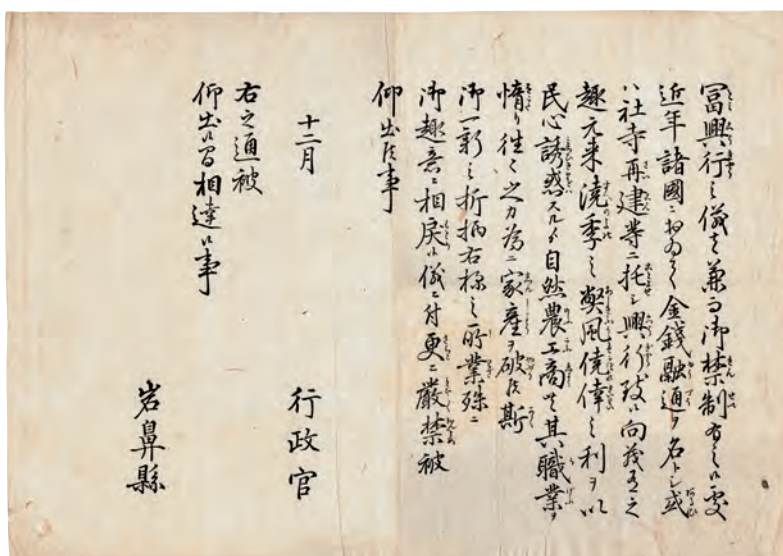 冨興行之儀者兼而御禁制有之候処
近年諸國ニおゐて金錢融通ヲ名トシ或
ハ社寺再建等ニ托シ興行致候向茂有之
趣元来澆季之弊風僥倖之利ヲ以
民心誘惑スルゟ自然農工商共其職業ヲ
惰り往々之カ為ニ家産ヲ破候斯
御一新之折柄右様之所業殊ニ
御趣意ニ相戻候儀ニ付更ニ嚴禁被
仰出候事
十二月
行政官
右之通被
仰出候間相達候事
岩鼻縣